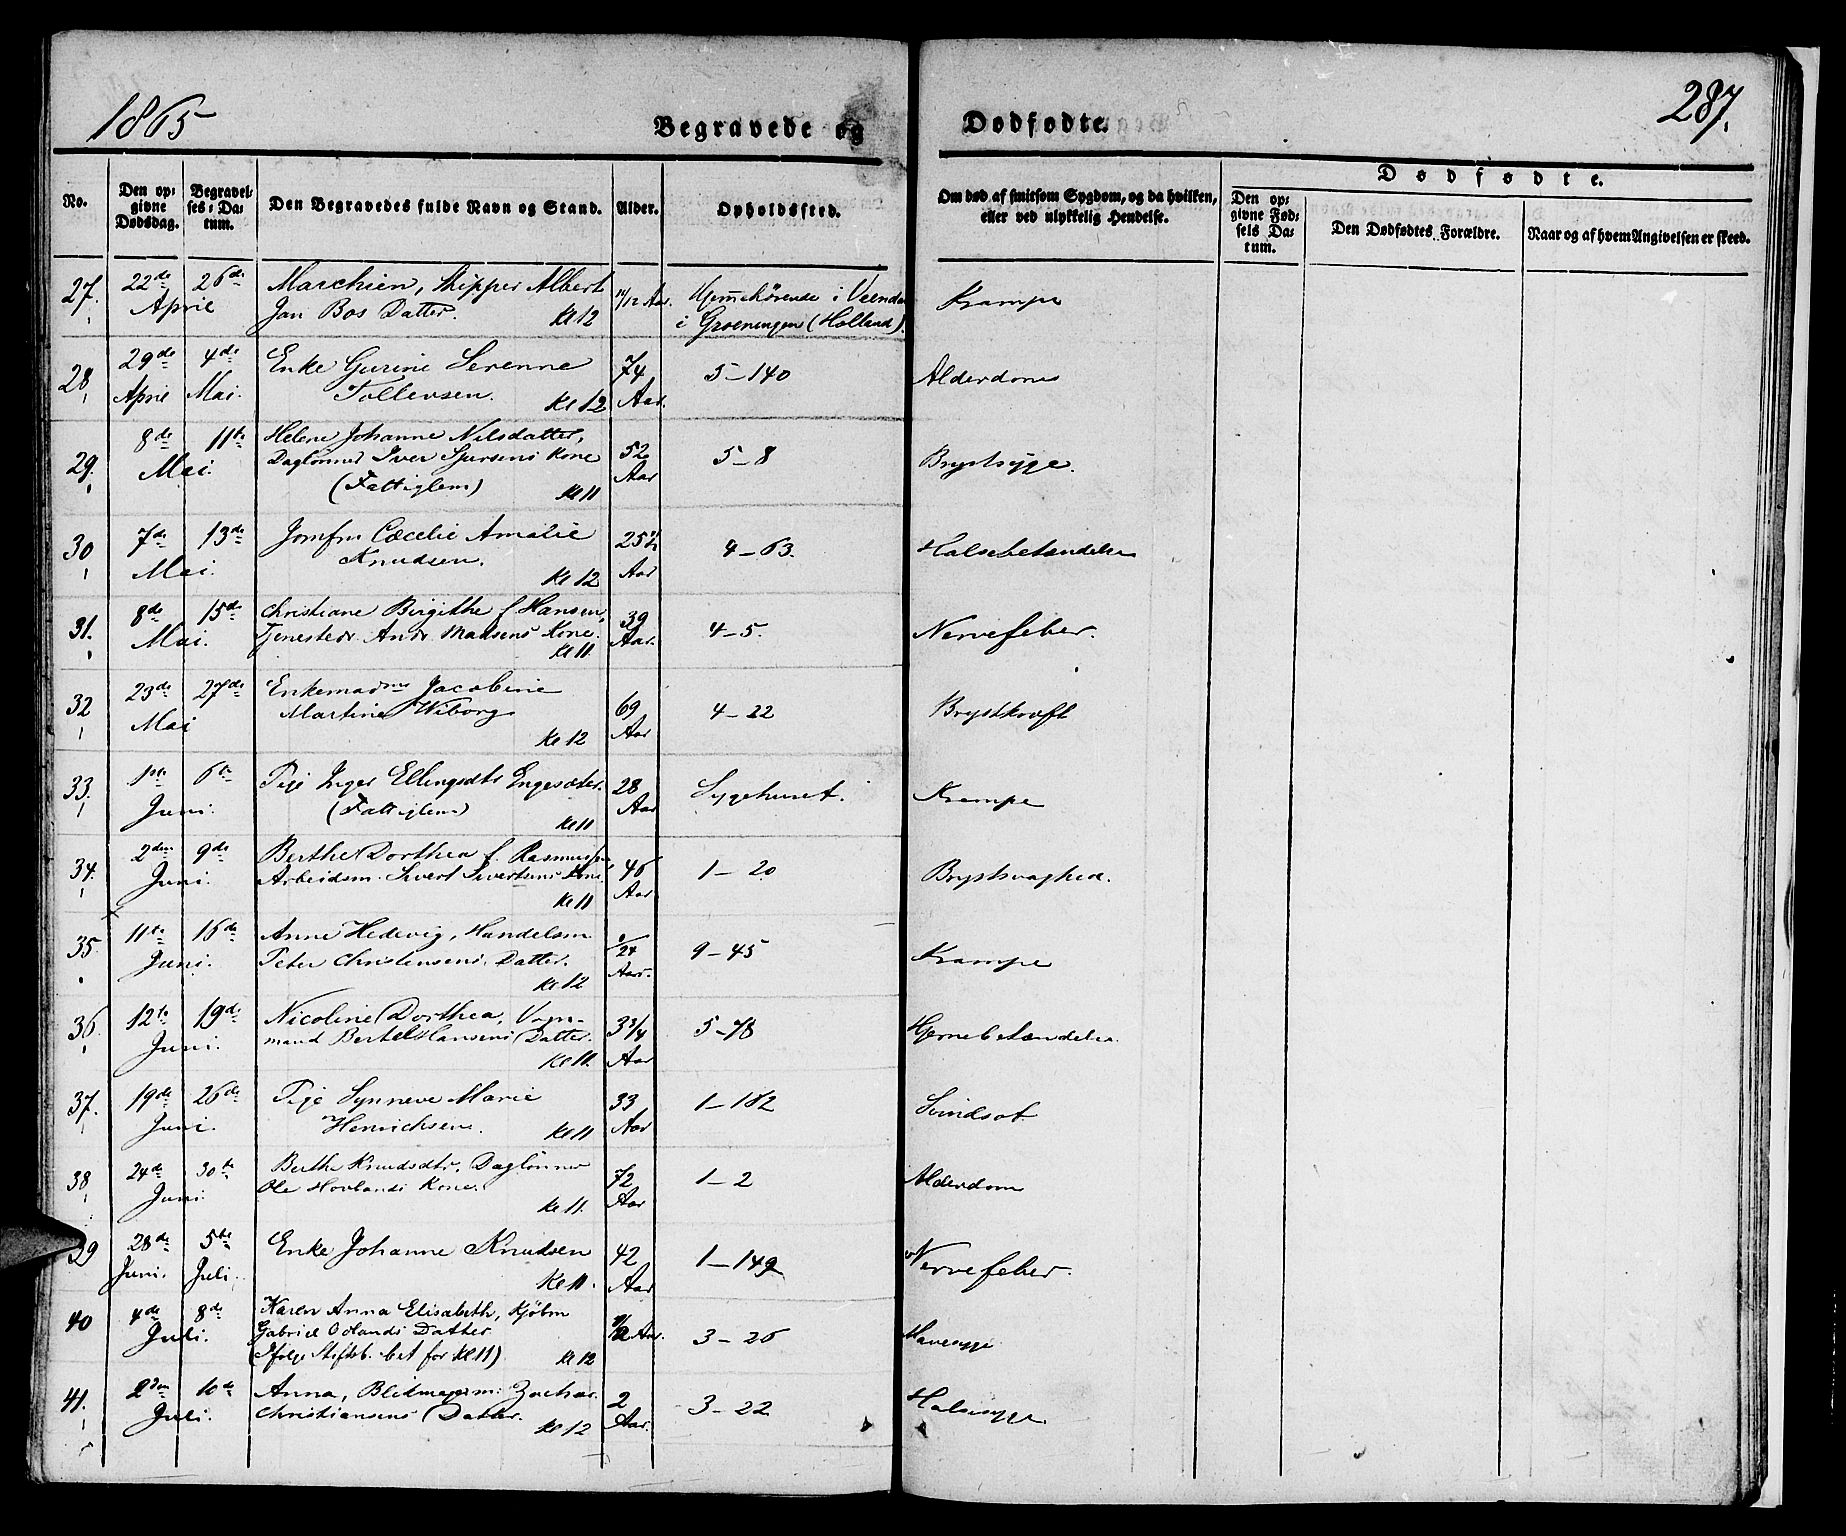 1865
Begravede og Dødfødte.
287.
No.
Den opgivne Dødsdag.
Begravelses-Datum.
Den Begravedes fulde Navn og Stand.
Alder.
Opholdssted.
Om død af smitsom Sygdom, og da hvilken, eller ved ulykkelig Hendelse.
Dødfødte.
Den opgivne Fødsels Datum.
Den Dødfødtes Forældre.
Naar og af hvem Angivelsen er skeed.
27. 22de 26de Marchien, Skipper Albert 11/12 Aar. Hjemmehörende i Veendam Krampe
April Jan Bos Datter. Kl 12 i Groeningen (Holland).
28 29de 4de Enke Gurine Serenne 74 5-140 Alderdoms
April Mai. Tollevsen. Kl 12 Aar.
29. 8de 11te Helene Johanne Nilsdatter, 52 5-8 Brystsyge.
Mai Daglönner Iver Sjursens Kone Aar
(Fattiglem) Kl 11
30 7de 13de Jomfru Cæcelie Amalie 25½ 4-63. Halsebetændelse
Mai. Knudsen. Kl 12 Aar
31. 8de 15de Christiane Birgithe f. Hansen, 39 4-5. Nervefeber.
Mai. Tjenestedr. Andr. Madsens Kone. Aar.
Kl 11.
32 23de 27de Enkemadme Jacobine 69 4-22 Brystkræft
Mai Martine Wiborg Aar
Kl 12
33. 1ste 6te Pige Inger Ellingsdtr Engesæter. 28 Sygehuset. Krampe
Juni. (Fattiglem) Aar
Kl 11
34. 2den 9de Berthe Dorthea f. Rasmussen 46 1-20 Brystsvaghed.
Juni. Arbeidsm. Sivert Sivertsens Kone. Aar
Kl 11
35. 11te 16de Anne Hedevig, Handelsm /24 9-45 Krampe
Juni. Peter Christensens Datter. Aar.
Kl 12
36. 12te 19de Nicoline Dorthea, Vogn- 3¾ 5-78 Hjernebetændelse.
Juni. mand Bertel Hansens Datter. Aar
Kl 11.
37. 19de 26de Pige Synneve Marie 33 1-182 Svindsot
Juni. Henrichsen. Kl 11 Aar
38. 24de 30te Berthe Knudsdtr. Daglönner 72 1-2 Alderdom
Juni. Ole Hovlands Kone. Aar
Kl 11.
39 28de 5te Enke Johanne Knudsen 42 1-149 Nervefeber.
Juni. Juli. Kl 11. Aar
40 4de 8de Karen Anna Elisabeth, Kjöbm Aar. 3-26 Mavesyge
Juli. Gabriel Odlands Datter
(Ifølge Stiftsb. bet for Kl 11) Kl 12
41. 2den 10de Anna, Blikmagerm. Zachar. 2 3-22 Halssyge
Juli. Christiansens Datter. Aar.
Kl 12